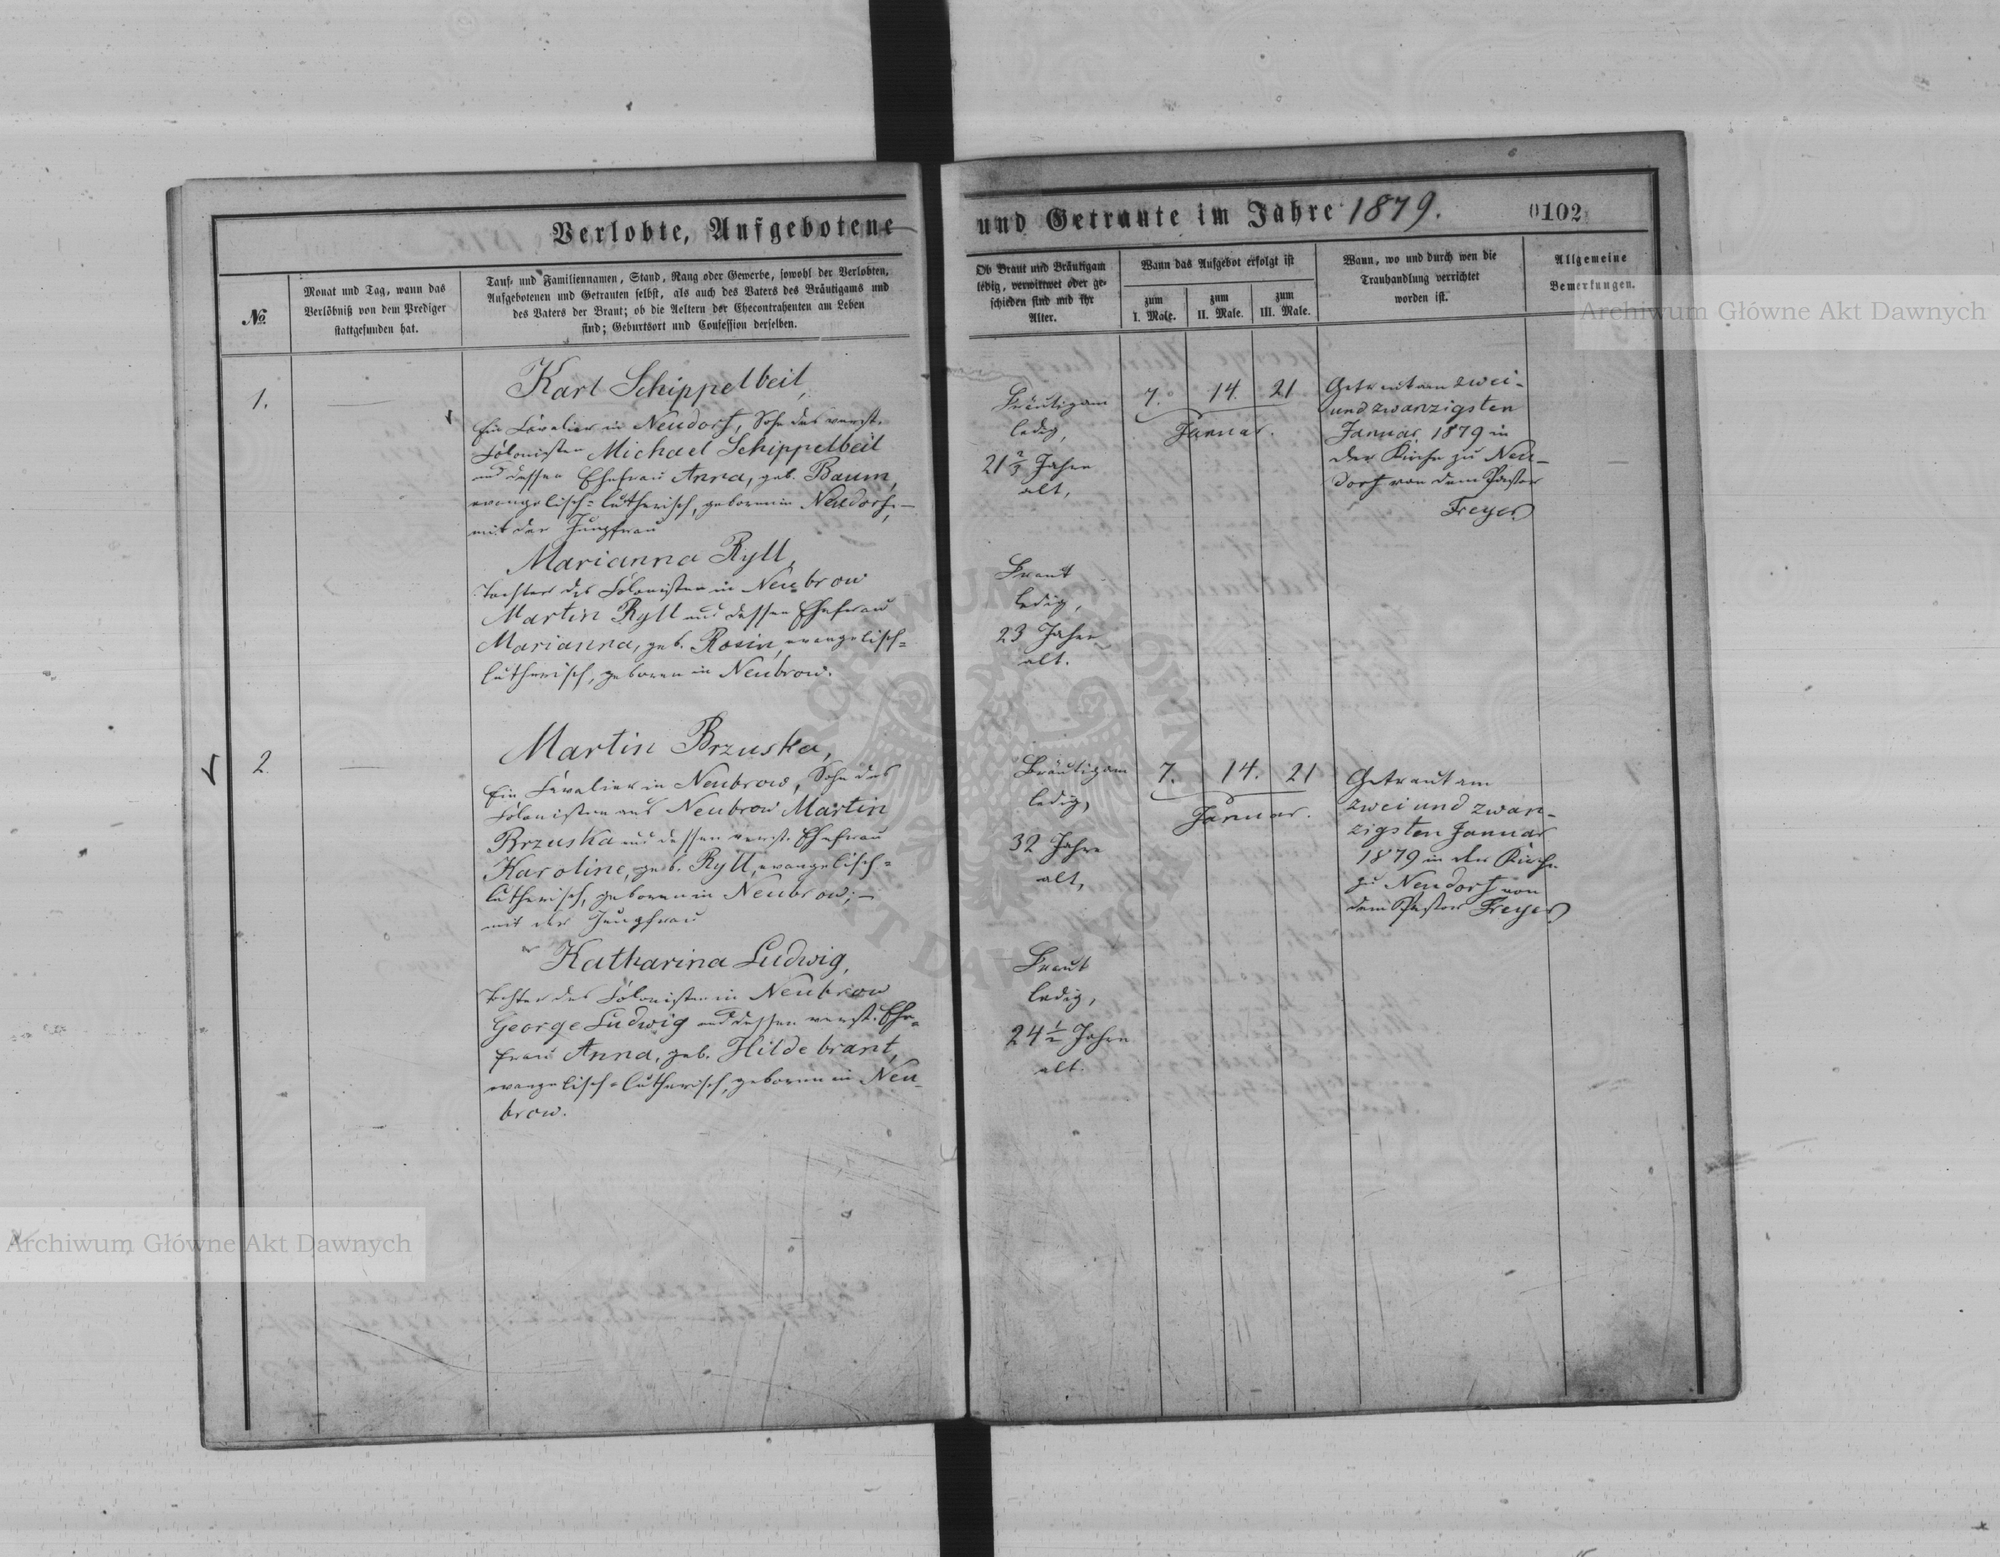 Verlobte, Aufgebotene
und Getraute im Jahre 1879.
0102
№
Monat und Tag, wann das
Verlöbniß von dem Prediger
stattgefunden hat.
Tauf- und Familiennamen, Stand, Rang oder Gewerbe, sowohl der Verlobten,
Aufgebotenen und Getrauten selbst, als auch des Vaters des Bräutigams und
des Vaters der Braut; ob die Aeltern der Ehecontrahenten am Leben
sind; Geburtsort und Confession derselben.
Ob Braut und Bräutigam
ledig, verwittwet oder ge-
schieden sind und ihr
Alter.
Wann das Aufgebot erfolgt ist
zum
I. Male.
zum
II. Male.
zum
III. Male.
Wann, wo und durch wen die
Trauhandlung verrichtet
worden ist.
Allgemeine
Bemerkungen.
1.
Karl Schippelbeil,
Ein Cavalier in Neudorf, Sohn des verst.
Colonisten Michael Schippelbeil
und dessen Ehefrau Anna, geb. Baum,
evangelisch-lutherisch, geboren in Neudorf, —
mit der Jungfrau
Marianna Ryll,
Tochter des Colonisten in Neubrow
Martin Ryll und dessen Ehefrau
Marianna, geb. Rosin, evangelisch-
lutherisch, geboren in Neubrow.
Bräutigam
ledig,
21 2/3 Jahre
alt,
Braut
ledig,
23 Jahre
alt.
7. 14. 21
Januar.
Getraut am zwei-
und zwanzigsten
Januar 1879 in
der Kirche zu Neu-
dorf von dem Pastor
Freyer
2.
Martin Brzuska,
Ein Cavalier in Neubrow, Sohn des
Colonisten aus Neubrow Martin
Brzuska und dessen verst. Ehefrau
Karoline, geb. Ryll, evangelisch-
lutherisch, geboren in Neubrow; —
mit der Jungfrau
Katharina Ludwig,
Tochter des Colonisten in Neubrow
George Ludwig und dessen verst. Ehe-
frau Anna, geb. Hildebrant,
evangelisch-lutherisch, geboren in Neu-
brow.
Bräutigam
ledig,
32 Jahre
alt,
Braut
ledig,
24 1/2 Jahre
alt.
7. 14. 21
Januar.
Getraut am
zwei und zwan-
zigsten Januar
1879 in der Kirche
zu Neudorf von
dem Pastor Freyer
Archiwum Główne Akt Dawnych
Archiwum Główne Akt Dawnych
ARCHIWUM GŁÓWNE AKT DAWNYCH